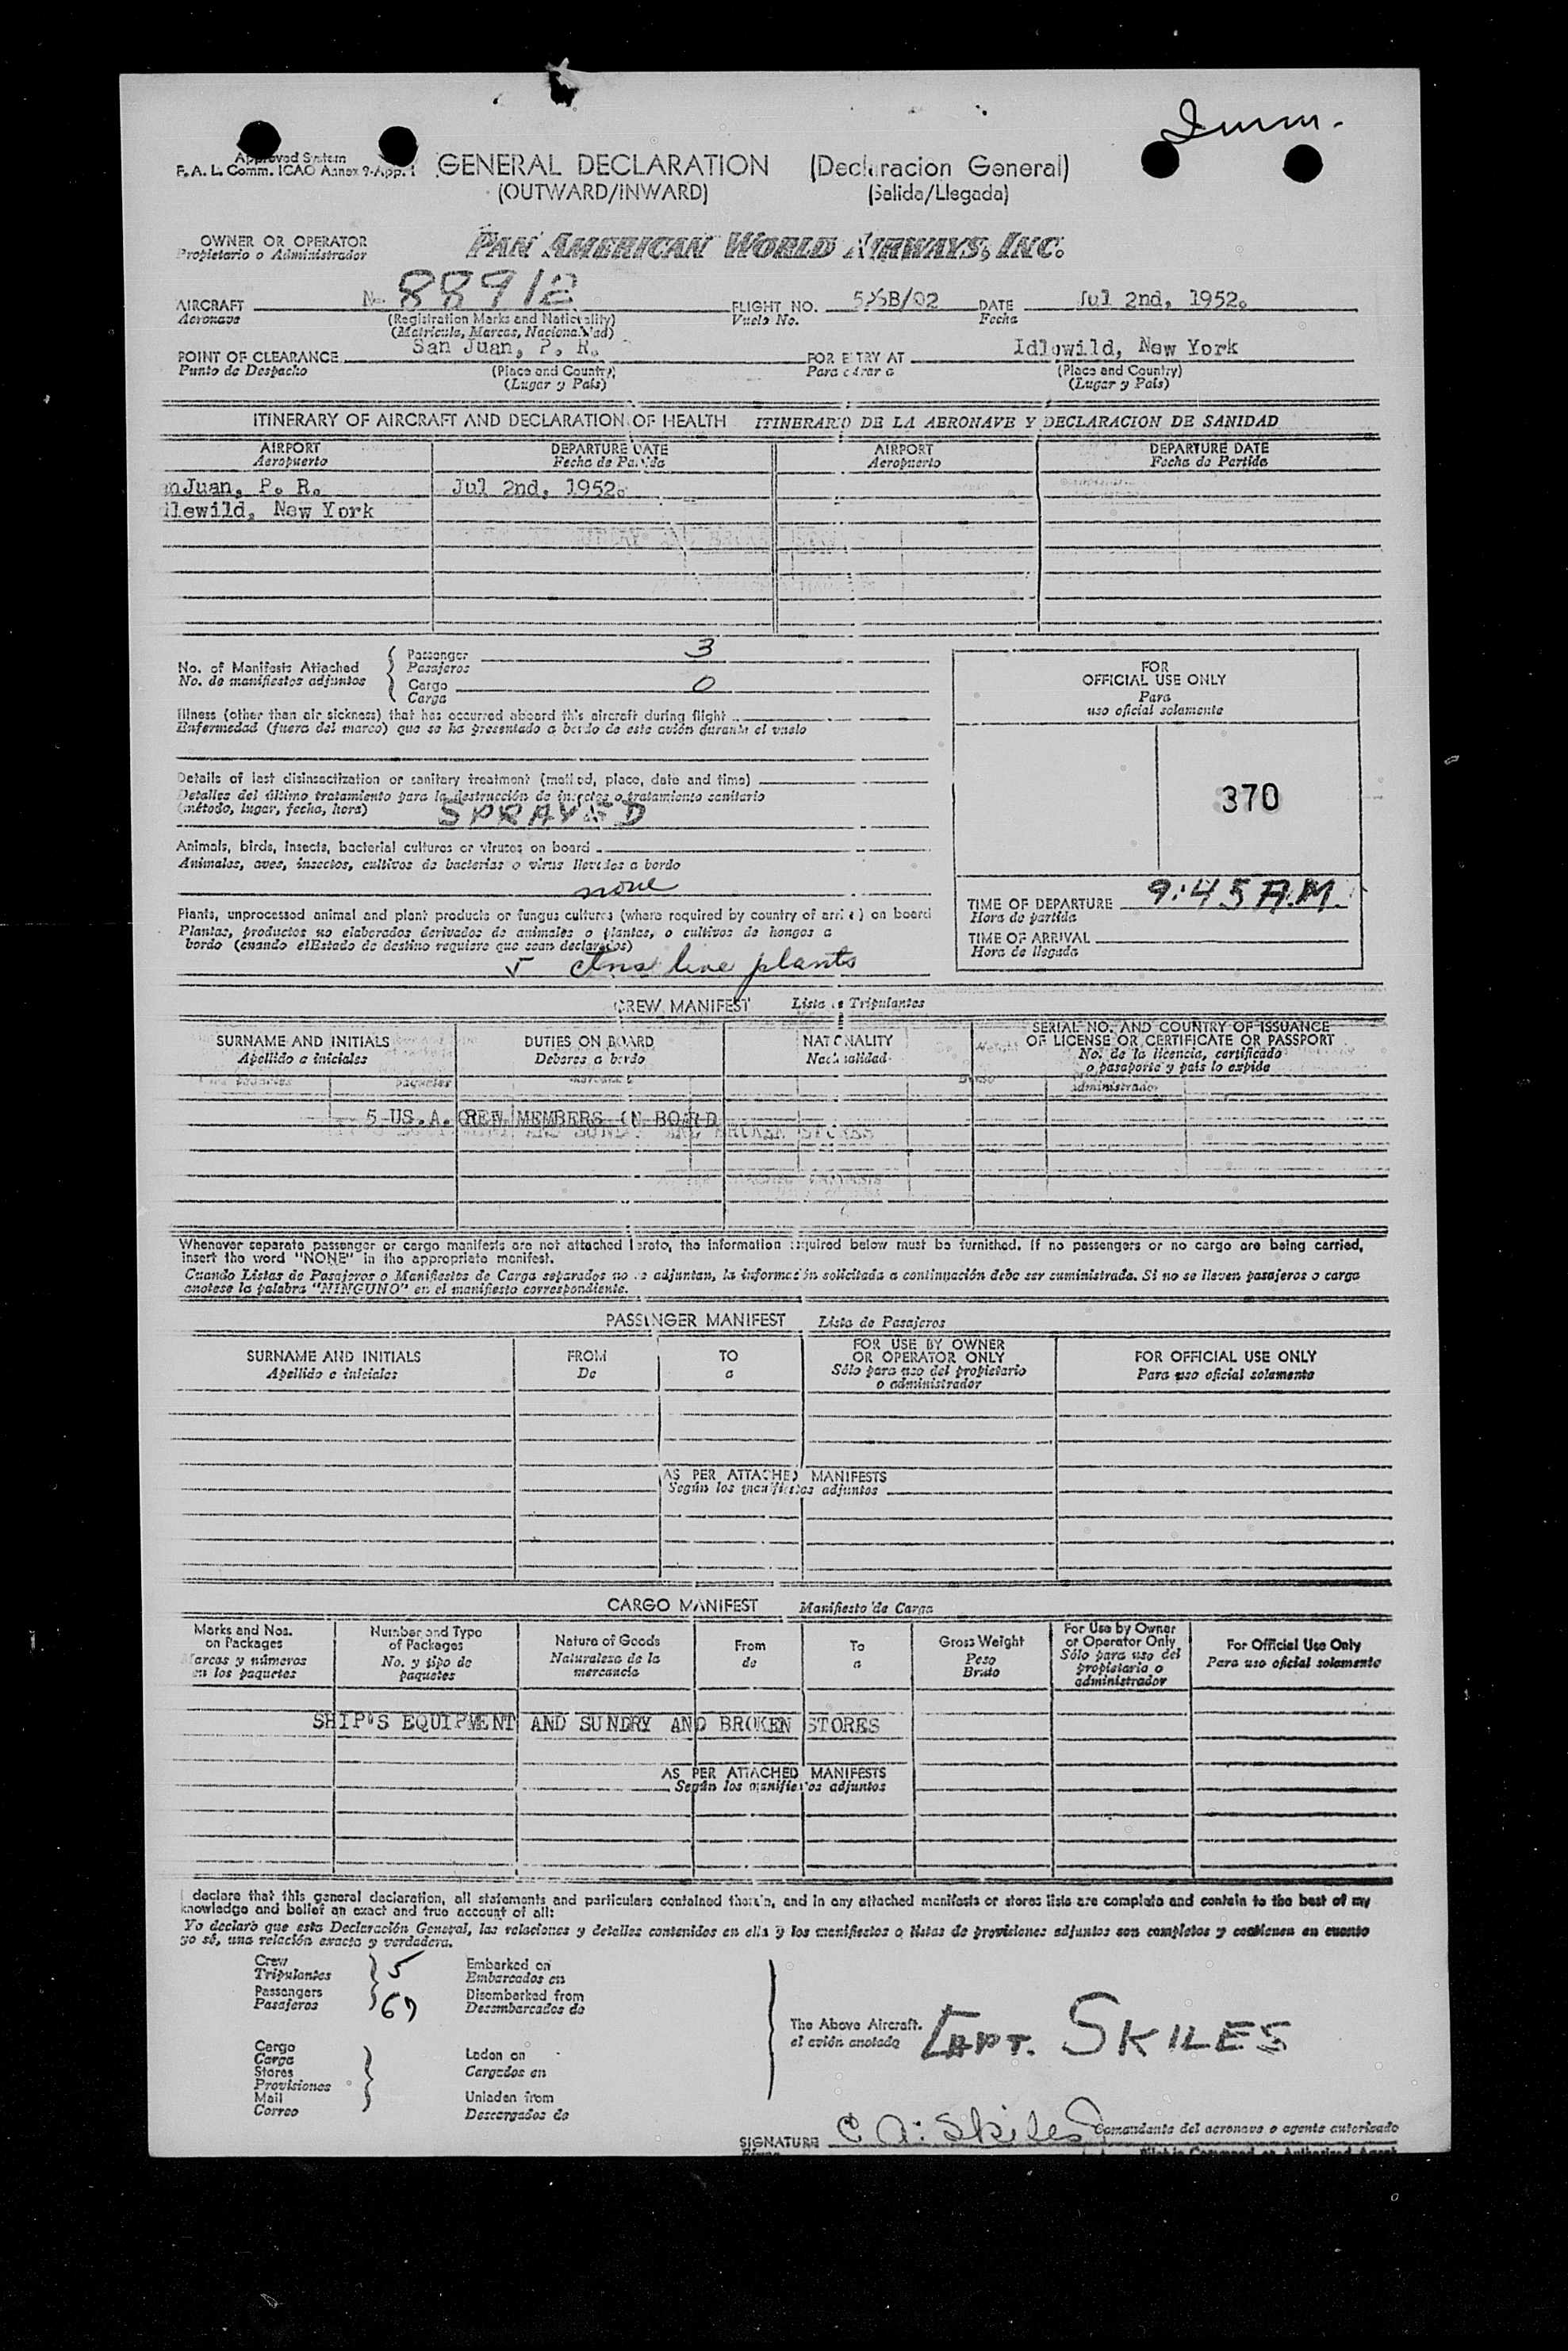 Imm.
Approved System
F. A. L. Comm. ICAO Annex 9-App. 1
GENERAL DECLARATION (Declaracion General)
(OUTWARD/INWARD) (Salida/Llegada)
OWNER OR OPERATOR PAN AMERICAN WORLD AIRWAYS, INC.
Propietario o Administrador
AIRCRAFT N- 88912 FLIGHT NO. DATE Jul 2nd, 1952.
Aeronave (Registration Marks and Nationality) Vuelo No. Fecha
(Matricula, Marcas, Nacionalidad)
POINT OF CLEARANCE San Juan, P. R. FOR ENTRY AT Idlewild, New York
Punto de Despacho (Place and Country) Para entrar a (Place and Country)
(Lugar y País) (Lugar y País)
ITINERARY OF AIRCRAFT AND DECLARATION OF HEALTH ITINERARIO DE LA AERONAVE Y DECLARACION DE SANIDAD
AIRPORT DEPARTURE DATE AIRPORT DEPARTURE DATE
Aeropuerto Fecha de Partida Aeropuerto Fecha de Partida
anJuan, P. R. Jul 2nd, 1952.
dlewild, New York
No. of Manifests Attached Passenger 3
No. de manifiestos adjuntos Pasajeros
Cargo 0
Carga
FOR
OFFICIAL USE ONLY
Para
uso oficial solamente
Illness (other than air sickness) that has occurred aboard this aircraft during flight
Enfermedad (fuera del mareo) que se ha presentado a bordo de este avión durante el vuelo
Details of last disinsectization or sanitary treatment (method, place, date and time)
Detalles del último tratamiento para la destrucción de insectos o tratamiento sanitario
(método, lugar, fecha, hora) SPRAYED
370
Animals, birds, insects, bacterial cultures or viruses on board
Animales, aves, insectos, cultivos de bacterias o virus llevados a bordo
none
TIME OF DEPARTURE 9:45 A.M.
Hora de partida
TIME OF ARRIVAL
Hora de llegada
Plants, unprocessed animal and plant products or fungus cultures (where required by country of arrival) on board
Plantas, productos no elaborados derivados de animales o plantas, o cultivos de hongos a
bordo (cuando elEstado de destino requiere que sean declarados)
live plants
CREW MANIFEST Lista de Tripulantes
SURNAME AND INITIALS DUTIES ON BOARD NATIONALITY SERIAL NO. AND COUNTRY OF ISSUANCE
Apellido a iniciales Deberes a bordo Nacionalidad OF LICENSE OR CERTIFICATE OR PASSPORT
No. de la licencia, certificado
o pasaporte y país lo expide
5 US.A. CREW MEMBERS ON BOARD
Whenever separate passenger or cargo manifests are not attached hereto, the information required below must be furnished. If no passengers or no cargo are being carried,
insert the word "NONE" in the appropriate manifest.
Cuando Listas de Pasajeros o Manifiestos de Carga separados no se adjuntan, la información solicitada a continuación debe ser suministrada. Si no se lleven pasajeros o carga
anotese la palabra "NINGUNO" en el manifiesto correspondiente.
PASSENGER MANIFEST Lista de Pasajeros
SURNAME AND INITIALS FROM TO FOR USE BY OWNER OR OPERATOR ONLY FOR OFFICIAL USE ONLY
Apellido e iniciales De a Sólo para uso del propietario o administrador Para uso oficial solamente
AS PER ATTACHED MANIFESTS
Según los manifiestos adjuntos
CARGO MANIFEST Manifiesto de Carga
Marks and Nos. on Packages Number and Type of Packages Nature of Goods From To Gross Weight For Use by Owner or Operator Only For Official Use Only
Marcas y números en los paquetes No. y tipo de paquetes Naturaleza de la mercancia de a Peso Bruto Sólo para uso del propietario o administrador Para uso oficial solamente
SHIP'S EQUIPMENT AND SUNDRY AND BROKEN STORES
AS PER ATTACHED MANIFESTS
Según los manifiestos adjuntos
I declare that this general declaration, all statements and particulars contained therein, and in any attached manifests or stores lists are complete and contain to the best of my
knowledge and belief an exact and true account of all:
Yo declaro que esta Declaración General, las relaciones y detalles contenidos en ella y los manifiestos o listas de provisiones adjuntos son completos y contienen en cuanto
yo sé, una relación exacta y verdadera.
Crew 5 Embarked on
Tripulantes Embarcados en
Passengers 67 Disembarked from
Pasajeros Desembarcados de
The Above Aircraft. CAPT. SKILES
el avión anotado
Cargo
Carga Laden on
Stores Cargados en
Provisiones
Mail Unladen from
Correo Descargados de
SIGNATURE C A. Skiles Comandante del aeronave o agente autorizado
Firma Pilot in Command or Authorized Agent